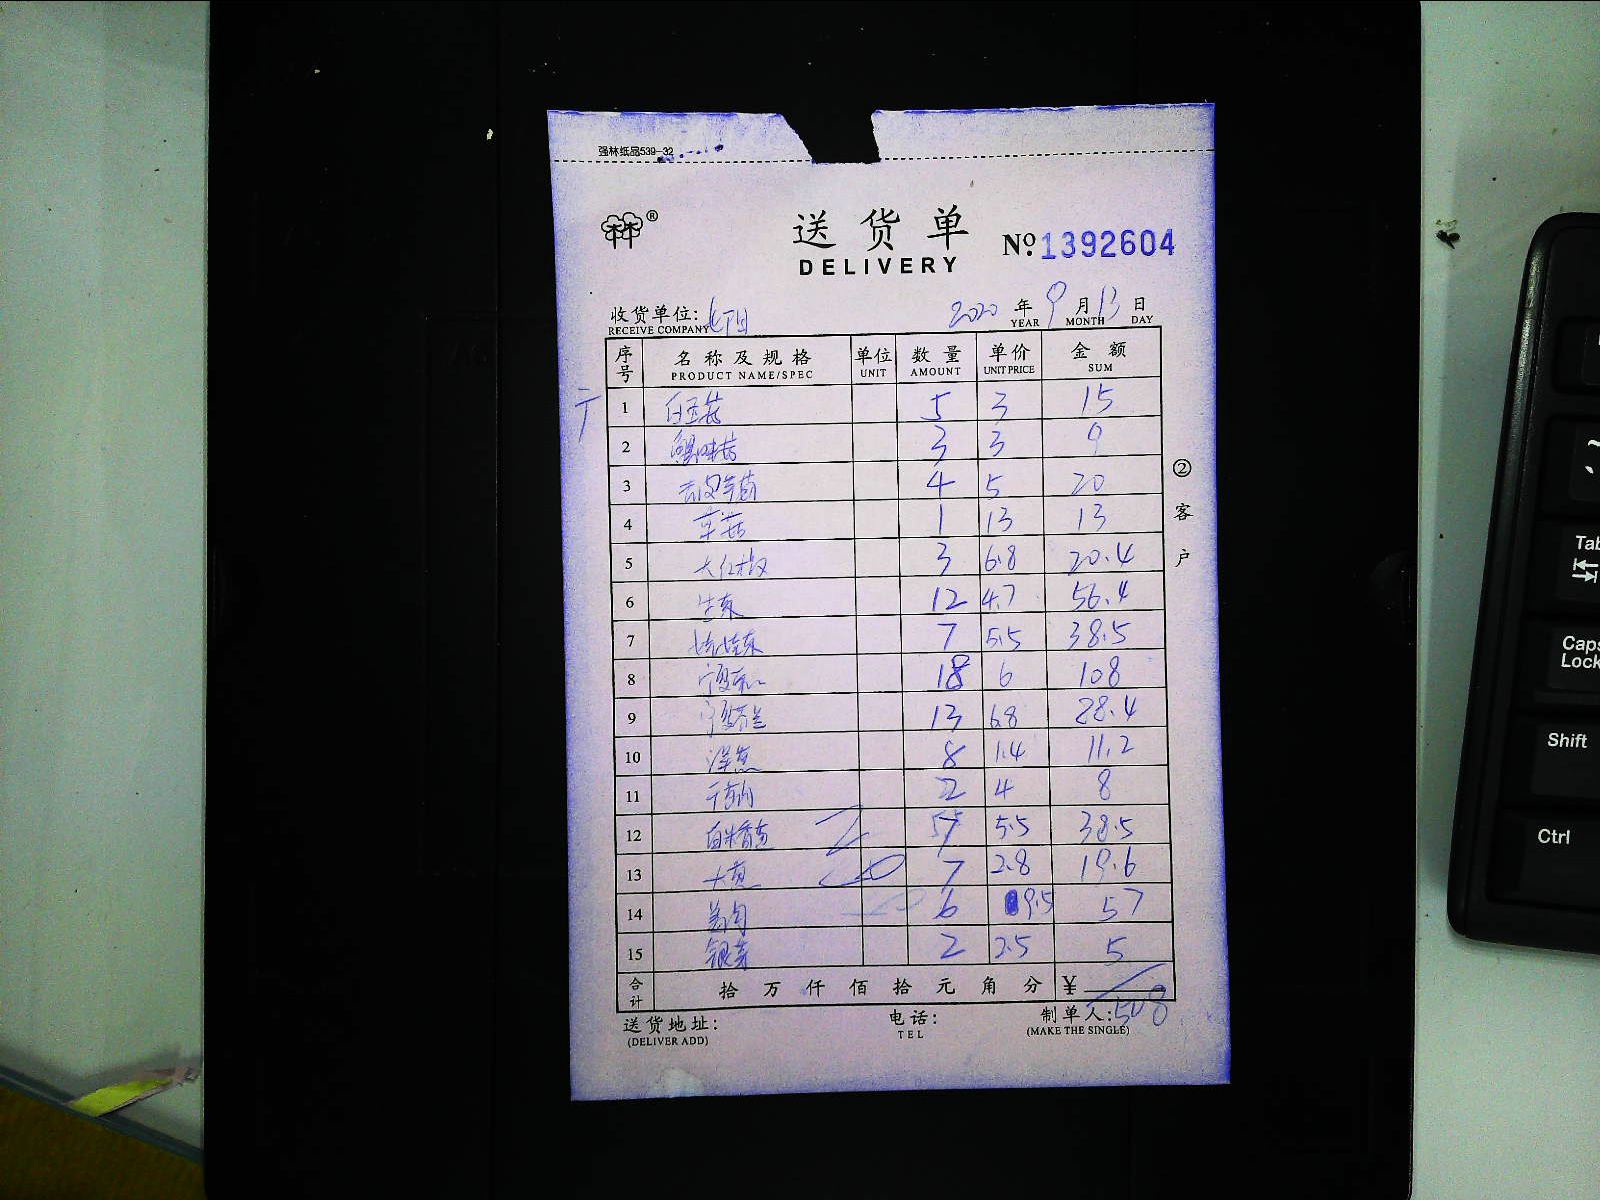 强林纸品539-32
®
送货单
DELIVERY
№:1392604
收货单位:
RECEIVE COMPANY
2020 年 9 月 13 日
YEAR MONTH DAY
序号 名称及规格 单位 数量 单价 金额
PRODUCT NAME/SPEC UNIT AMOUNT UNIT PRICE SUM
1 白玉菇 5 3 15
2 蟹味菇 3 3 9
3 4 5 20
4 草菇 1 13 13
5 大红椒 3 6.8 20.4
6 生菜 12 4.7 56.4
7 娃娃菜 7 5.5 38.5
8 宁夏菜心 18 6 108
9 宁夏芥兰 13 6.8 28.4
10 洋葱 8 1.4 11.2
11 2 4 8
12 7 5.5 38.5
13 7 2.8 19.6
14 6 9.5 57
15 银芽 2 2.5 5
合计 拾 万 仟 佰 拾 元 角 分 ¥ 508
送货地址:
(DELIVER ADD)
电话:
TEL
制单人:
(MAKE THE SINGLE)
②客户
Tab
Caps Lock
Shift
Ctrl